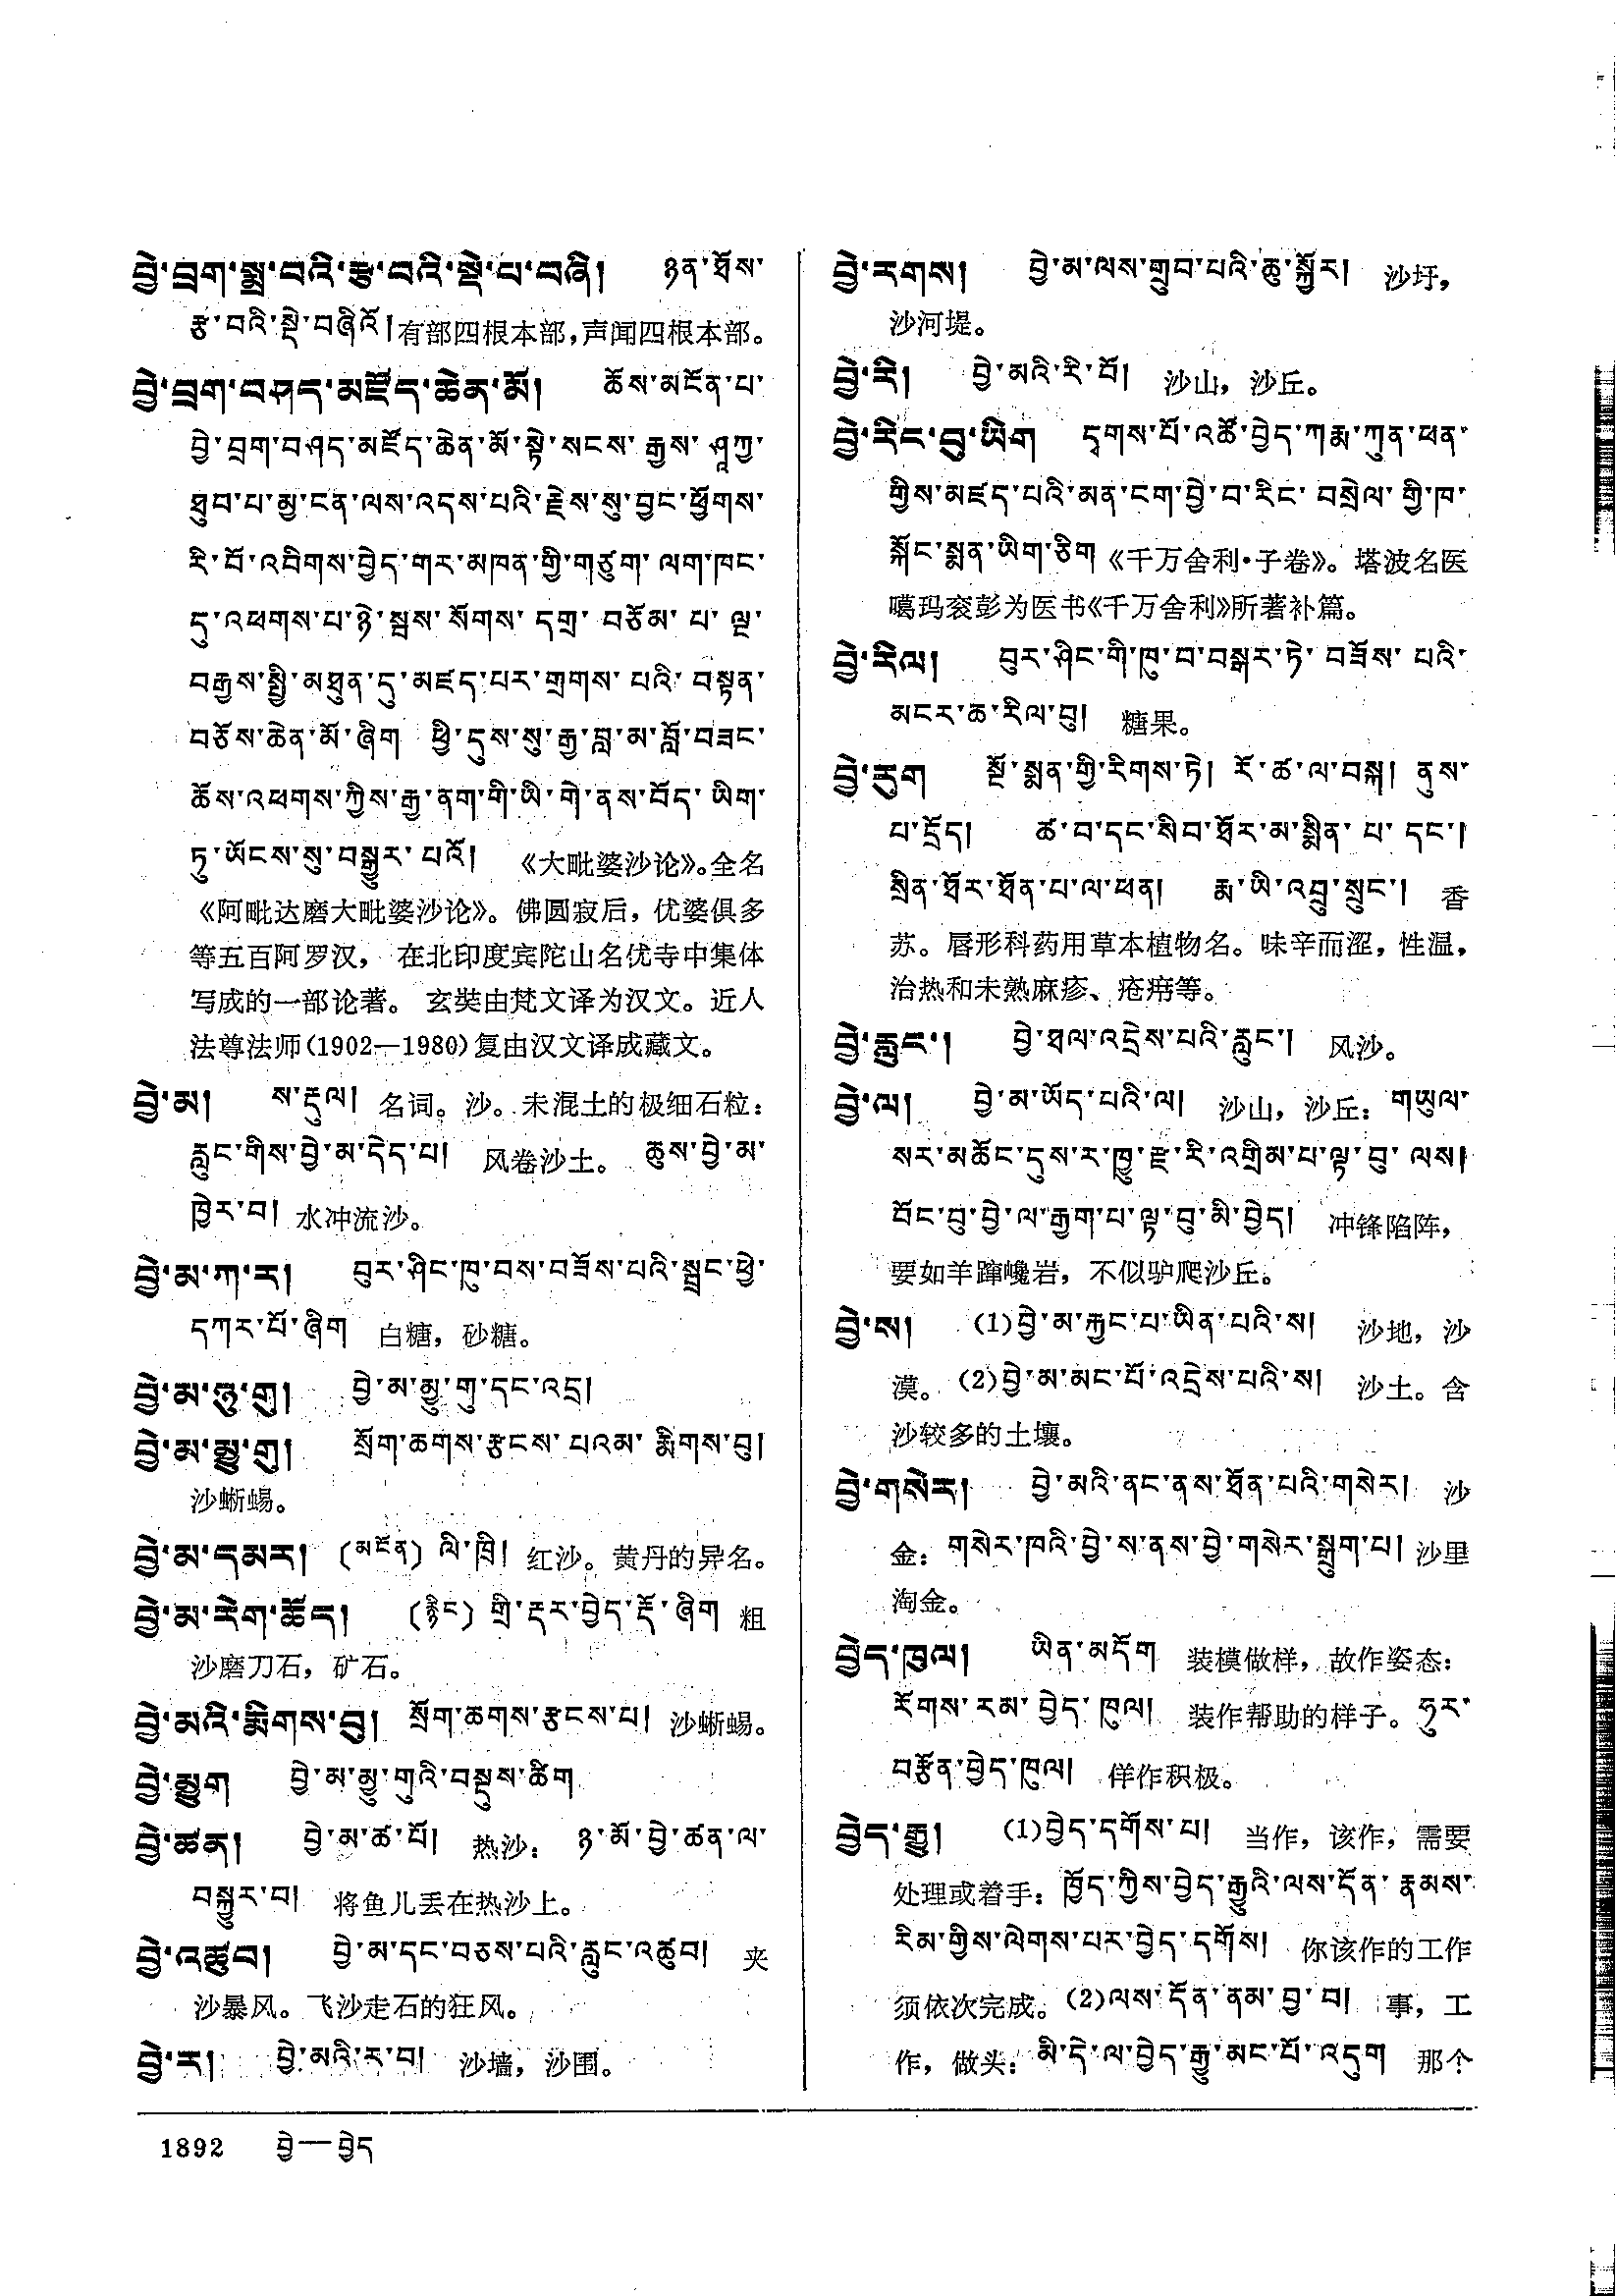 བྱེ་བྲག་སྨྲ་བའི་རྩ་བའི་སྡེ་པ་བཞི། ཉན་ཐོས་
རྩ་བའི་སྡེ་བཞིའོ། 有部四根本部,声闻四根本部。
བྱེ་བྲག་བཤད་མཛོད་ཆེན་མོ། ཆོས་མངོན་པ་
བྱེ་བྲག་བཤད་མཛོད་ཆེན་མོ་སྟེ་སངས་རྒྱས་ཤཱཀྱ་
ཐུབ་པ་མྱ་ངན་ལས་འདས་པའི་རྗེས་སུ་བྱང་ཕྱོགས་
རི་བོ་འབིགས་བྱེད་གར་མཁན་གྱི་གཙུག་ལག་ཁང་
དུ་འཕགས་པ་ཉེ་སྦས་སོགས་དགྲ་བཅོམ་པ་ལྔ་
བརྒྱས་སྤྱི་མཐུན་དུ་མཛད་པར་གྲགས་པའི་བསྟན་
བཅོས་ཆེན་མོ་ཞིག ཕྱི་དུས་སུ་རྒྱ་བླ་མ་བློ་བཟང་
ཆོས་འཕགས་ཀྱིས་རྒྱ་ནག་གི་ཡི་གེ་ནས་བོད་ཡིག་
ཏུ་ཡོངས་སུ་བསྒྱུར་པའོ། 《大毗婆沙论》。全名
《阿毗达磨大毗婆沙论》。佛圆寂后，优婆俱多
等五百阿罗汉，在北印度宾陀山名优寺中集体
写成的一部论著。玄奘由梵文译为汉文。近人
法尊法师(1902—1980)复由汉文译成藏文。
བྱེ་མ། ས་རྡུལ། 名词。沙。未混土的极细石粒：
རླུང་གིས་བྱེ་མ་དེད་པ། 风卷沙土。 ཆུས་བྱེ་མ་
ཁྱེར་བ། 水冲流沙。
བྱེ་མ་ཀ་ར། བུར་ཤིང་ཁུ་བས་བཟོས་པའི་སྦྲང་ཕྱེ་
དཀར་པོ་ཞིག 白糖，砂糖。
བྱེ་མ་ཉུ་གུ། བྱེ་མ་མྱུ་གུ་དང་འདྲ།
བྱེ་མ་མྱུ་གུ། སྲོག་ཆགས་རྩངས་པའམ་རྨིགས་བུ།
沙蜥蜴。
བྱེ་མ་དམར། (མངོན) ལི་ཁྲི། 红沙。黄丹的异名。
བྱེ་མ་རེག་ཚོད། (རྙིང) གྲི་རྡར་བྱེད་རྡོ་ཞིག 粗
沙磨刀石，矿石。
བྱེ་མའི་རྨིགས་བུ། སྲོག་ཆགས་རྩངས་པ། 沙蜥蜴。
བྱེ་མྱུག བྱེ་མ་མྱུ་གུའི་བསྡུས་ཚིག
བྱེ་ཚན། བྱེ་མ་ཚ་པོ། 热沙： ཉ་མོ་བྱེ་ཚན་ལ་
བསྐྱུར་བ། 将鱼儿丢在热沙上。
བྱེ་འཚུབ། བྱེ་མ་དང་བཅས་པའི་རླུང་འཚུབ། 夹
沙暴风。飞沙走石的狂风。
བྱེ་ར། བྱེ་མའི་ར་བ། 沙墙，沙围。
བྱེ་རགས། བྱེ་མ་ལས་གྲུབ་པའི་ཆུ་སྐྱོར། 沙圩，
沙河堤。
བྱེ་རི། བྱེ་མའི་རི་བོ། 沙山，沙丘。
བྱེ་རིང་བུ་ཡིག དྭགས་པོ་འཚོ་བྱེད་ཀརྨ་ཀུན་ཕན་
གྱིས་མཛད་པའི་མན་ངག་བྱེ་བ་རིང་བསྲེལ་གྱི་ཁ་
སྐོང་སྨན་ཡིག་ཅིག 《千万舍利·子卷》。塔波名医
噶玛衮彭为医书《千万舍利》所著补篇。
བྱེ་རིལ། བུར་ཤིང་གི་ཁུ་བ་བསྒར་ཏེ་བཟོས་པའི་
མངར་ཆ་རིལ་བུ། 糖果。
བྱེ་རུག སྔོ་སྨན་གྱི་རིགས་ཏེ། རོ་ཚ་ལ་བསྐ། ནུས་
པ་དྲོད། ཚ་བ་དང་སིབ་ཐོར་མ་སྨིན་པ་དང་།
སྲིན་ཐོར་ཐོན་པ་ལ་ཕན། རྨ་ཡི་འབྲུ་སྲུང་། 香
苏。唇形科药用草本植物名。味辛而涩，性温，
治热和未熟麻疹、疮疖等。
བྱེ་རླུང་། བྱེ་ཐལ་འདྲེས་པའི་རླུང་། 风沙。
བྱེ་ལ། བྱེ་མ་ཡོད་པའི་ལ། 沙山，沙丘： གཡུལ་
སར་མཆོང་དུས་ར་ཁྱུ་རྫ་རི་འགྲིམ་པ་ལྟ་བུ་ལས།
བོང་བུ་བྱེ་ལ་རྒྱག་པ་ལྟ་བུ་མི་བྱེད། 冲锋陷阵，
要如羊蹿巉岩，不似驴爬沙丘。
བྱེ་ས། (1)བྱེ་མ་རྐྱང་པ་ཡིན་པའི་ས། 沙地，沙
漠。(2)བྱེ་མ་མང་པོ་འདྲེས་པའི་ས། 沙土。含
沙较多的土壤。
བྱེ་གསེར། བྱེ་མའི་ནང་ནས་ཐོན་པའི་གསེར། 沙
金： གསེར་ཁའི་བྱེ་ས་ནས་བྱེ་གསེར་སྒྲུག་པ། 沙里
淘金。
བྱེད་ཁུལ། ཡིན་མདོག 装模做样，故作姿态：
རོགས་རམ་བྱེད་ཁུལ། 装作帮助的样子。 ཧུར་
བརྩོན་བྱེད་ཁུལ། 佯作积极。
བྱེད་རྒྱུ། (1)བྱེད་དགོས་པ། 当作，该作，需要
处理或着手： ཁྱོད་ཀྱིས་བྱེད་རྒྱུའི་ལས་དོན་རྣམས་
རིམ་གྱིས་ལེགས་པར་བྱེད་དགོས། 你该作的工作
须依次完成。(2)ལས་དོན་ནམ་བྱ་བ། 事，工
作，做头： མི་དེ་ལ་བྱེད་རྒྱུ་མང་པོ་འདུག 那个
1892 བྱེ—བྱེད